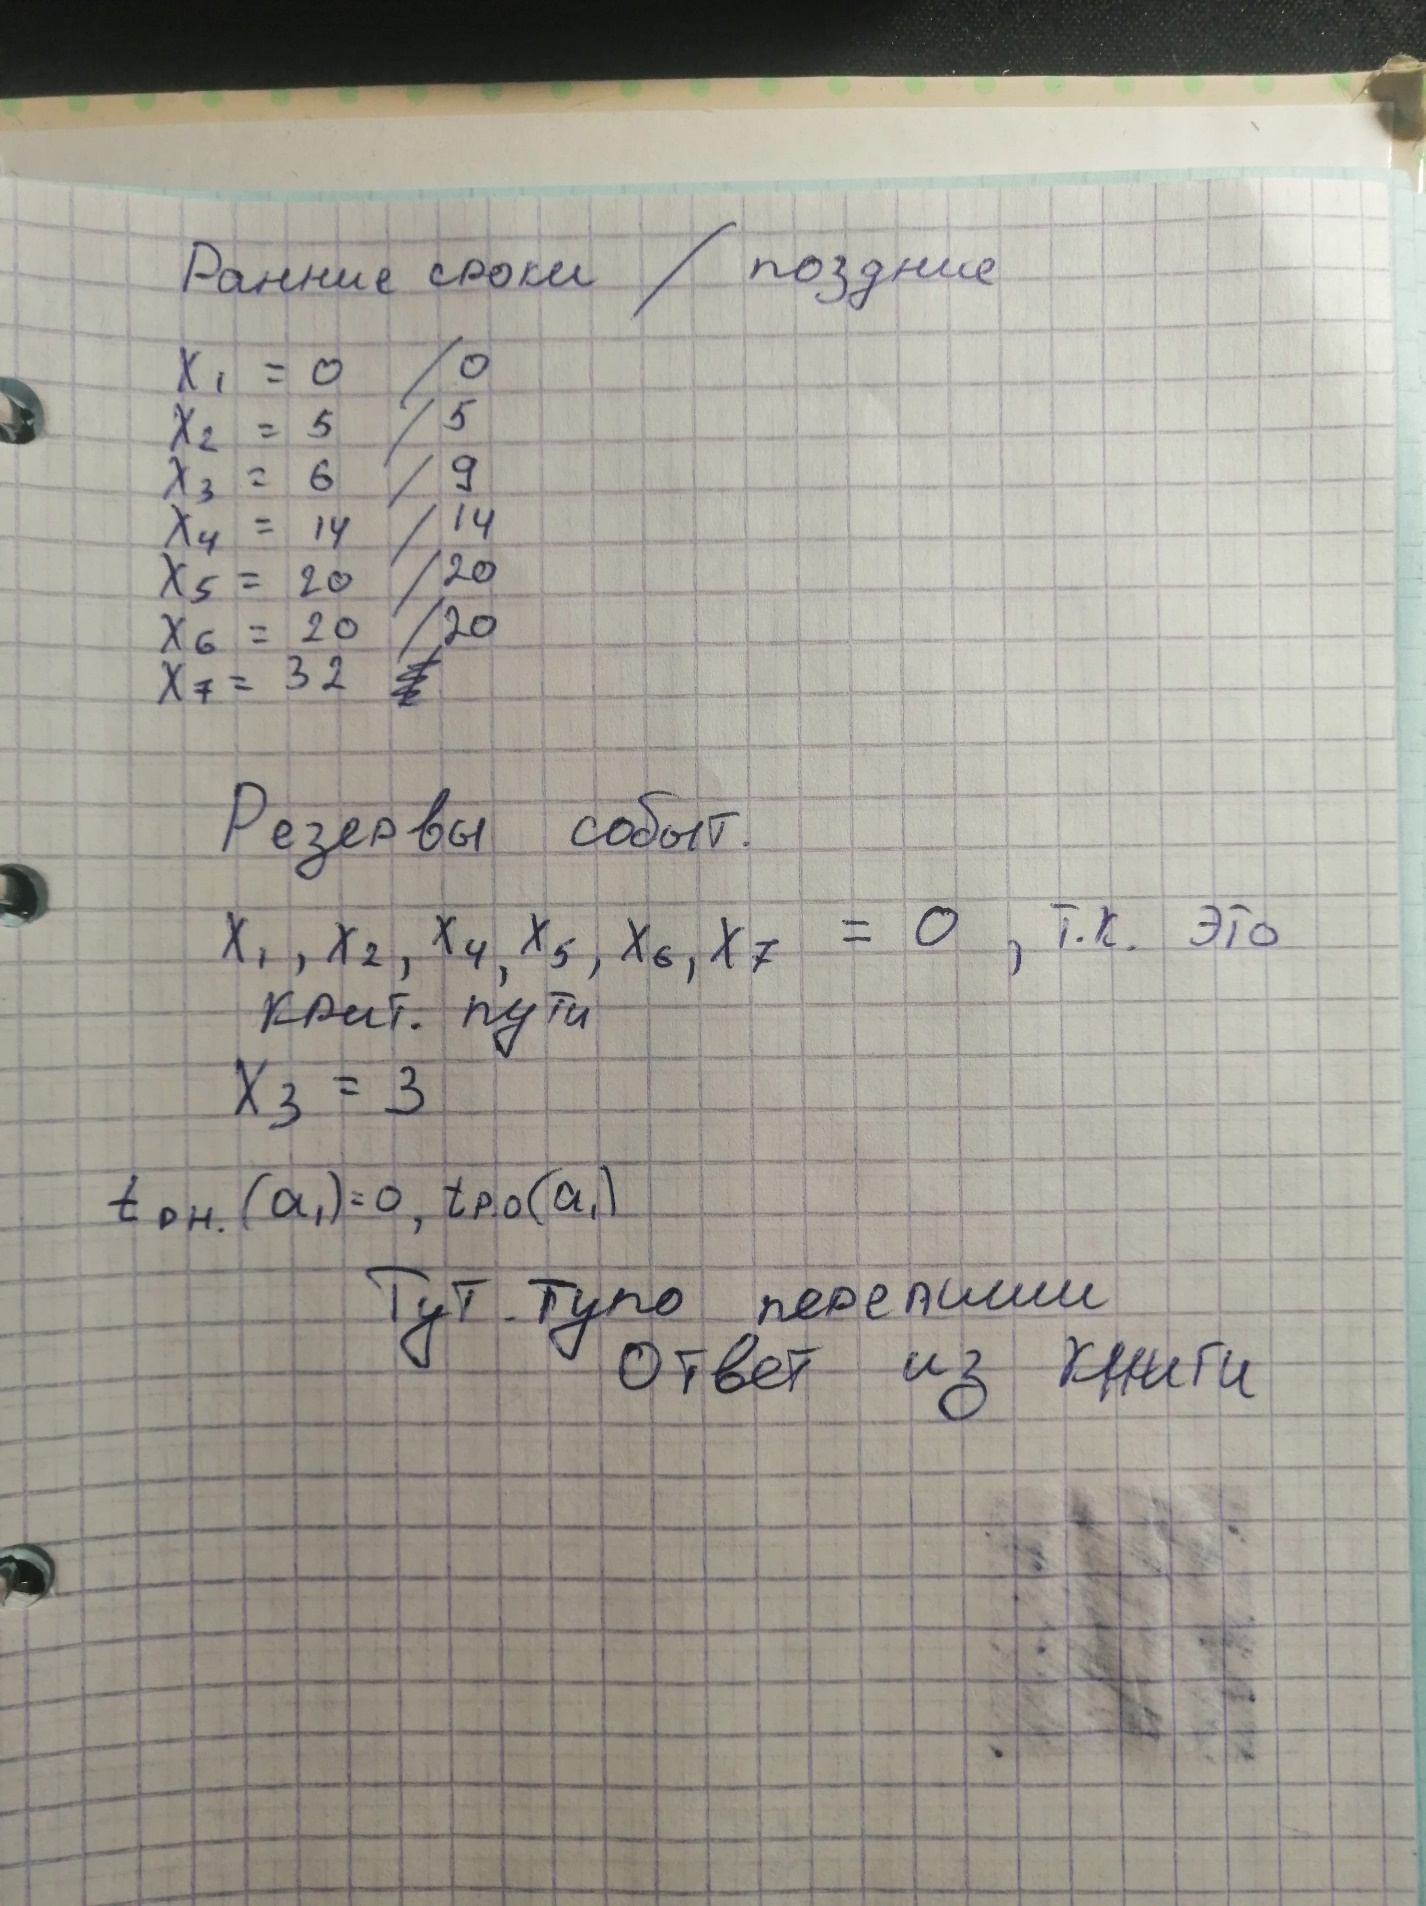 Ранние сроки / поздние
X1 = 0 / 0
X2 = 5 / 5
X3 = 6 / 9
X4 = 14 / 14
X5 = 20 / 20
X6 = 20 / 20
X7 = 32
Резервы событ.
X1, X2, X4, X5, X6, X7 = 0, т.к. это
крит. пути
X3 = 3
tрн. (a1)=0, tр.о(a1)
Тут тупо перепиши
Ответ из книги